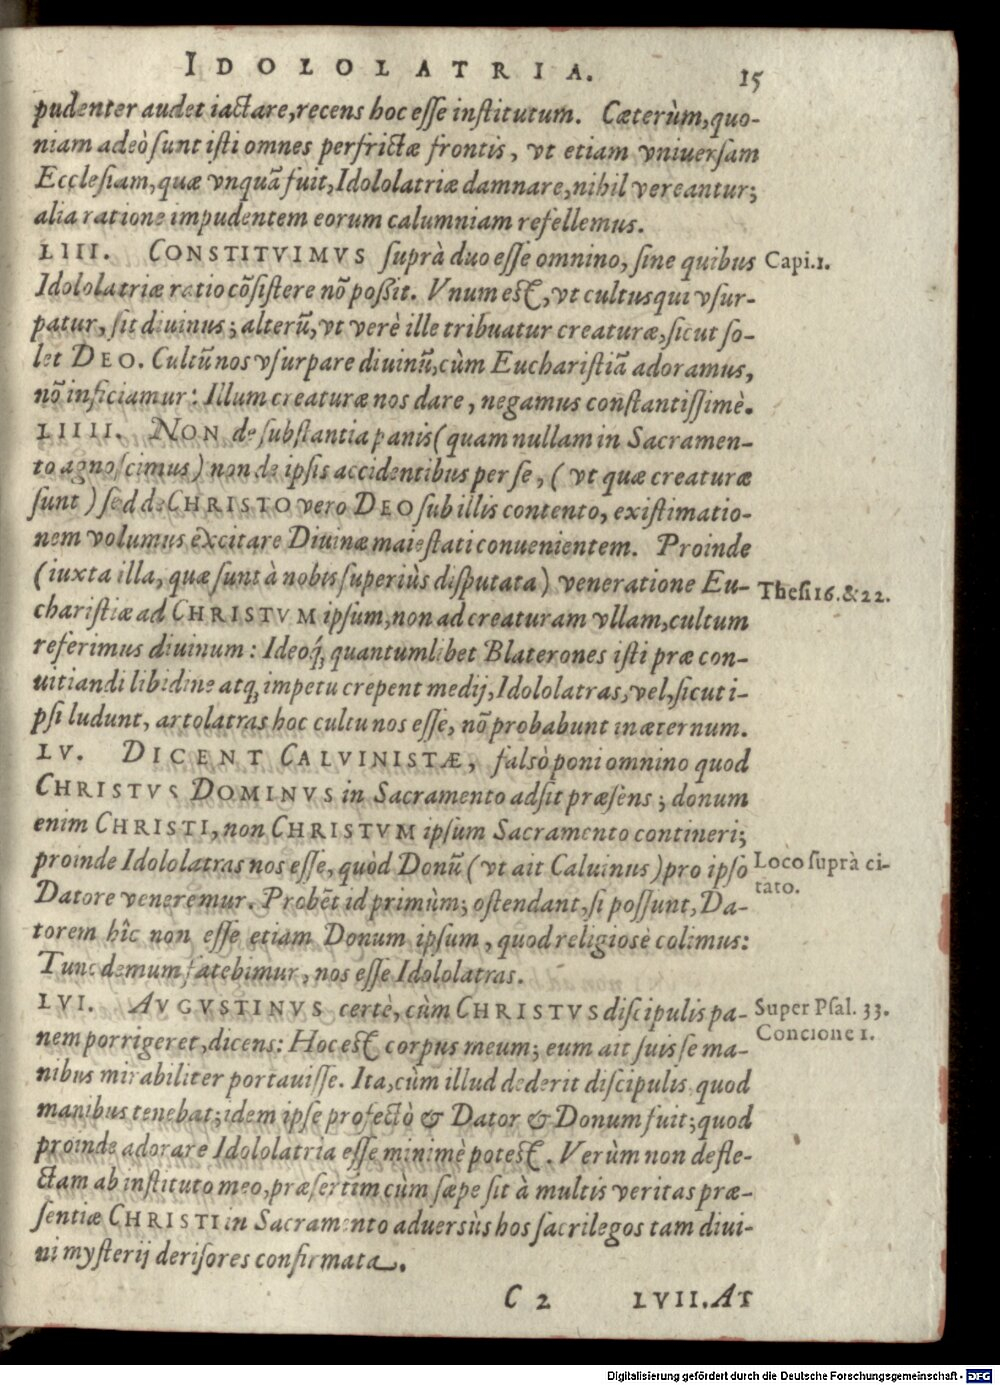 IDOLOLATRIA. 15
pudenter audet iactare, recens hoc esse institutum. Cæterùm, quo-
niam adeò sunt isti omnes perfrictæ frontis, vt etiam vniuersam
Ecclesiam, quæ vnquã fuit, Idololatriæ damnare, nihil vereantur;
alia ratione impudentem eorum calumniam refellemus.
LIII. CONSTITVIMVS suprà duo esse omnino, sine quibus Capi.1.
Idololatriæ ratio cõsistere nõ poßit. Vnum est, vt cultus qui vsur-
patur, sit diuinus; alterũ, vt verè ille tribuatur creaturæ, sicut so-
let DEO. Cultũ nos vsurpare diuinũ, cùm Eucharistiã adoramus,
nõ inficiamur: Illum creaturæ nos dare, negamus constantissimè.
LIIII. NON de substantia panis (quam nullam in Sacramen-
to agnoscimus) non de ipsis accidentibus per se, (vt quæ creaturæ
sunt) sed de CHRISTO vero DEO sub illis contento, existimatio-
nem volumus excitare Diuinæ maiestati conuenientem. Proinde
(iuxta illa, quæ sunt à nobis superiùs disputata) veneratione Eu- Thesi 16. & 22.
charistiæ ad CHRISTVM ipsum, non ad creaturam vllam, cultum
referimus diuinum: Ideoq́, quantumlibet Blaterones isti præ con-
uitiandi libidine atq; impetu crepent medij, Idololatras, vel, sicut i-
psi ludunt, artolatras hoc cultu nos esse, nõ probabunt in æternum.
LV. DICENT CALVINISTÆ, falsò poni omnino quod
CHRISTVS DOMINVS in Sacramento adsit præsens; donum
enim CHRISTI, non CHRISTVM ipsum Sacramento contineri;
proinde Idololatras nos esse, quòd Donũ (vt ait Caluinus) pro ipso Loco suprà ci-
tato.
Datore veneremur. Probẽt id primùm; ostendant, si possunt, Da-
torem hîc non esse etiam Donum ipsum, quod religiosè colimus:
Tunc demum fatebimur, nos esse Idololatras.
LVI. AVGVSTINVS certè, cùm CHRISTVS discipulis pa- Super Psal. 33.
Concione 1.
nem porrigeret, dicens: Hoc est corpus meum; eum ait suis se ma-
nibus mirabiliter portauisse. Ita, cùm illud dederit discipulis quod
manibus tenebat; idem ipse profectò & Dator & Donum fuit; quod
proinde adorare Idololatria esse minimè potest. Verùm non defle-
ctam ab instituto meo, præsertim cùm sæpe sit à multis veritas præ-
sentiæ CHRISTI in Sacramento aduersùs hos sacrilegos tam diui-
ni mysterij derisores confirmata.
C 2 LVII. AT
Digitalisierung gefördert durch die Deutsche Forschungsgemeinschaft - DFG